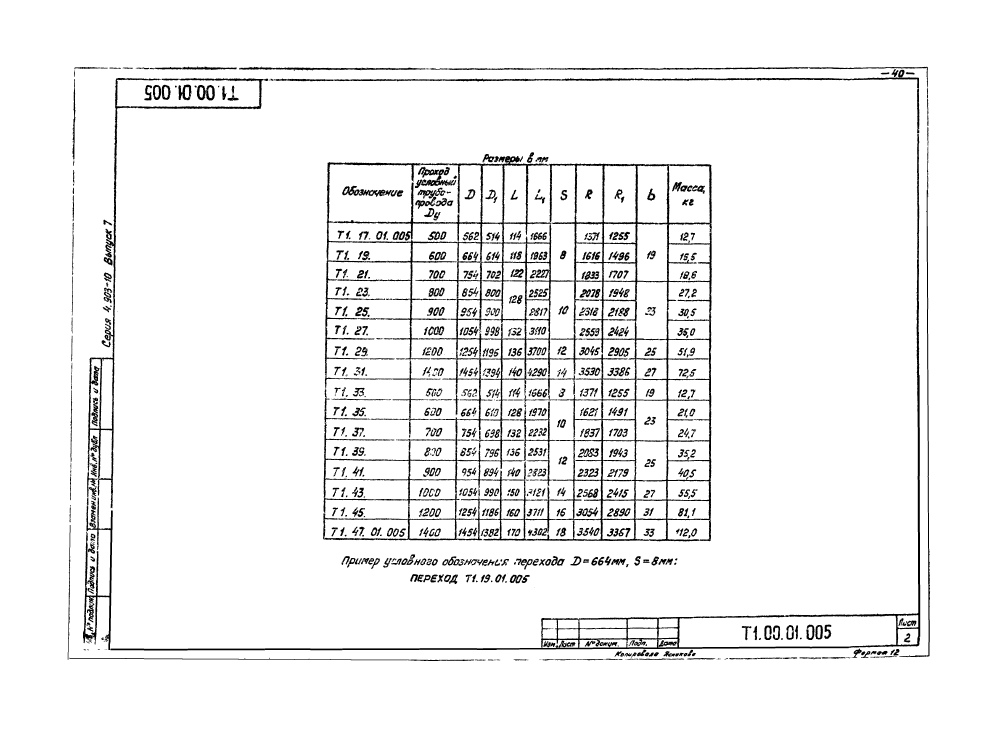 — 40 —
Т1.00.01.005
Серия 4.903-10 Выпуск 7
Размеры в мм
Обозначение Проход условный трубо-провода Dу D D1 L L1 S R R1 b Масса, кг
Т1. 17. 01. 005 500 562 514 114 1666 8 1371 1255 19 12,7
Т1. 19. 600 664 614 118 1963 1616 1496 15,5
Т1. 21. 700 754 702 122 2227 1833 1707 18,6
Т1. 23. 800 854 800 128 2525 10 2078 1948 23 27,2
Т1. 25. 900 954 900 2817 2318 2188 30,5
Т1. 27. 1000 1054 998 132 3110 2559 2424 35,0
Т1. 29. 1200 1254 1196 136 3700 12 3045 2905 25 51,9
Т1. 31. 1400 1454 1394 140 4290 14 3530 3386 27 72,5
Т1. 33. 500 562 514 114 1666 1371 1255 19 12,7
Т1. 35. 600 664 610 128 1970 10 1621 1491 23 21,0
Т1. 37. 700 754 698 132 2232 1837 1703 24,7
Т1. 39. 800 854 796 136 2531 12 2083 1943 25 35,2
Т1. 41. 900 954 894 140 2823 2323 2179 40,5
Т1. 43. 1000 1054 990 150 3121 14 2568 2415 27 55,5
Т1. 45. 1200 1254 1186 160 3711 16 3054 2890 31 81,1
Т1. 47. 01. 005 1400 1454 1382 170 4302 18 3540 3367 33 112,0
Пример условного обозначения перехода D=664мм, S=8мм:
ПЕРЕХОД Т1.19.01.005
Подпись и дата
Инв.№ дубл
Взамен инв.№
Подпись и дата
Инв.№ подлин.
Изм. Лист №докум. Подп. Дата
Т1.00.01.005
Лист
2
Копировала
Формат 12